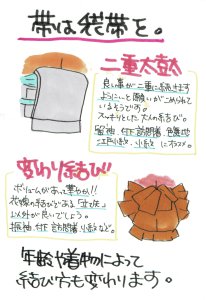 帯は袋帯を。
二重太鼓
良い事が二重に続きます
ようにいと願いがこめられて
いるそうです。
スッキリとした大人の結び。
留袖、付下、訪問着、色無地
江戸小紋、小紋 にオススメ。
変わり結び!!
ボリュームがあって華やか!!
花嫁の結びである「立て矢」
以外が良いでしょう。
振袖、付下、訪問着、小紋など。
年齢や着物によって
結び方も変わります。